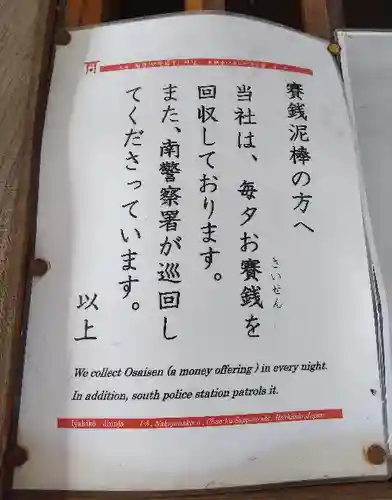 賽銭泥棒の方へ
当社は、毎夕お賽銭を
さいせん
回収しております。
また、南警察署が巡回し
てくださっています。
以上
We collect Osaisen (a money offering ) in every night.
In addition, south police station patrols it.
Iyahiko Jinnja